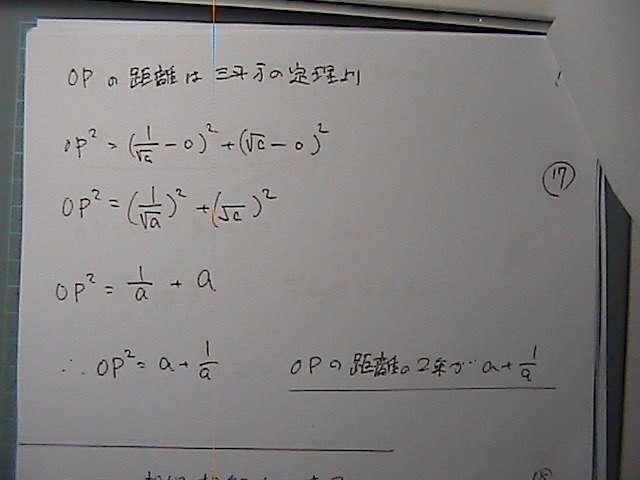 OPの距離は三平方の定理より
OP² = (1/√a - 0)² + (√a - 0)²
⑰
OP² = (1/√a)² + (√a)²
OP² = 1/a + a
∴ OP² = a + 1/a
OPの距離の2乗が a + 1/a